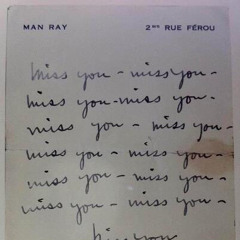 MAN RAY 2BIS RUE FÉROU
miss you - miss you -
miss you - miss you -
miss you - miss you -
miss you - miss you -
miss you - miss you -
miss you - miss you -